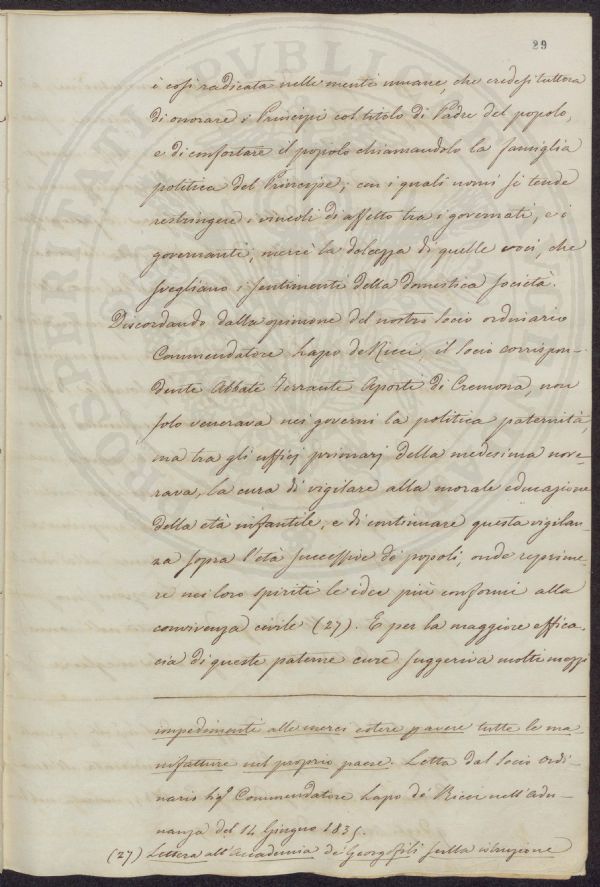 29
è così radicata nelle menti umane, che credesi tuttora
di onorare i Principi col titolo di Padre del popolo,
e di confortare il popolo chiamandolo la famiglia
politica del Principe; con i quali nomi si tende
restringere i vincoli di affetto tra i governati, e i
governanti, mercè la dolcezza di quelle voci, che
svegliano i sentimenti della domestica società.
Discordando dalla opinione del nostro socio ordinario
Commendatore Lapo de Ricci, il socio corrispon-
dente Abbate Ferrante Aporti di Cremona, non
solo venerava nei governi la politica paternità,
ma tra gli uffizj primarj della medesima nove-
rava, la cura di vigilare alla morale educazione
della età infantile, e di continuare questa vigilan-
za sopra l'età successive de' popoli, onde reprime-
re nei loro spiriti le idee più conformi alla
convivenza civile (27). E per la maggiore effica-
cia di queste paterne cure suggeriva molti mezzi
impedimenti alle merci estere pavere tutte le ma-
nifatture nel proprio paese. Letta dal socio ordi-
nario Sigr Commendatore Lapo de' Ricci nell'Adu-
nanza del 14 Giugno 1835.
(27) Lettera all'Accademia de' Georgofili sulla istruzione
PROSPERITATI PVBLICAE